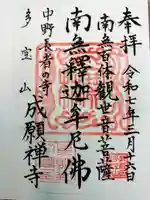 奉拝
令和七年三月十六日
南無百体観世音菩薩
南無釋迦牟尼佛
中野長者の寺
成願禅寺
多宝山